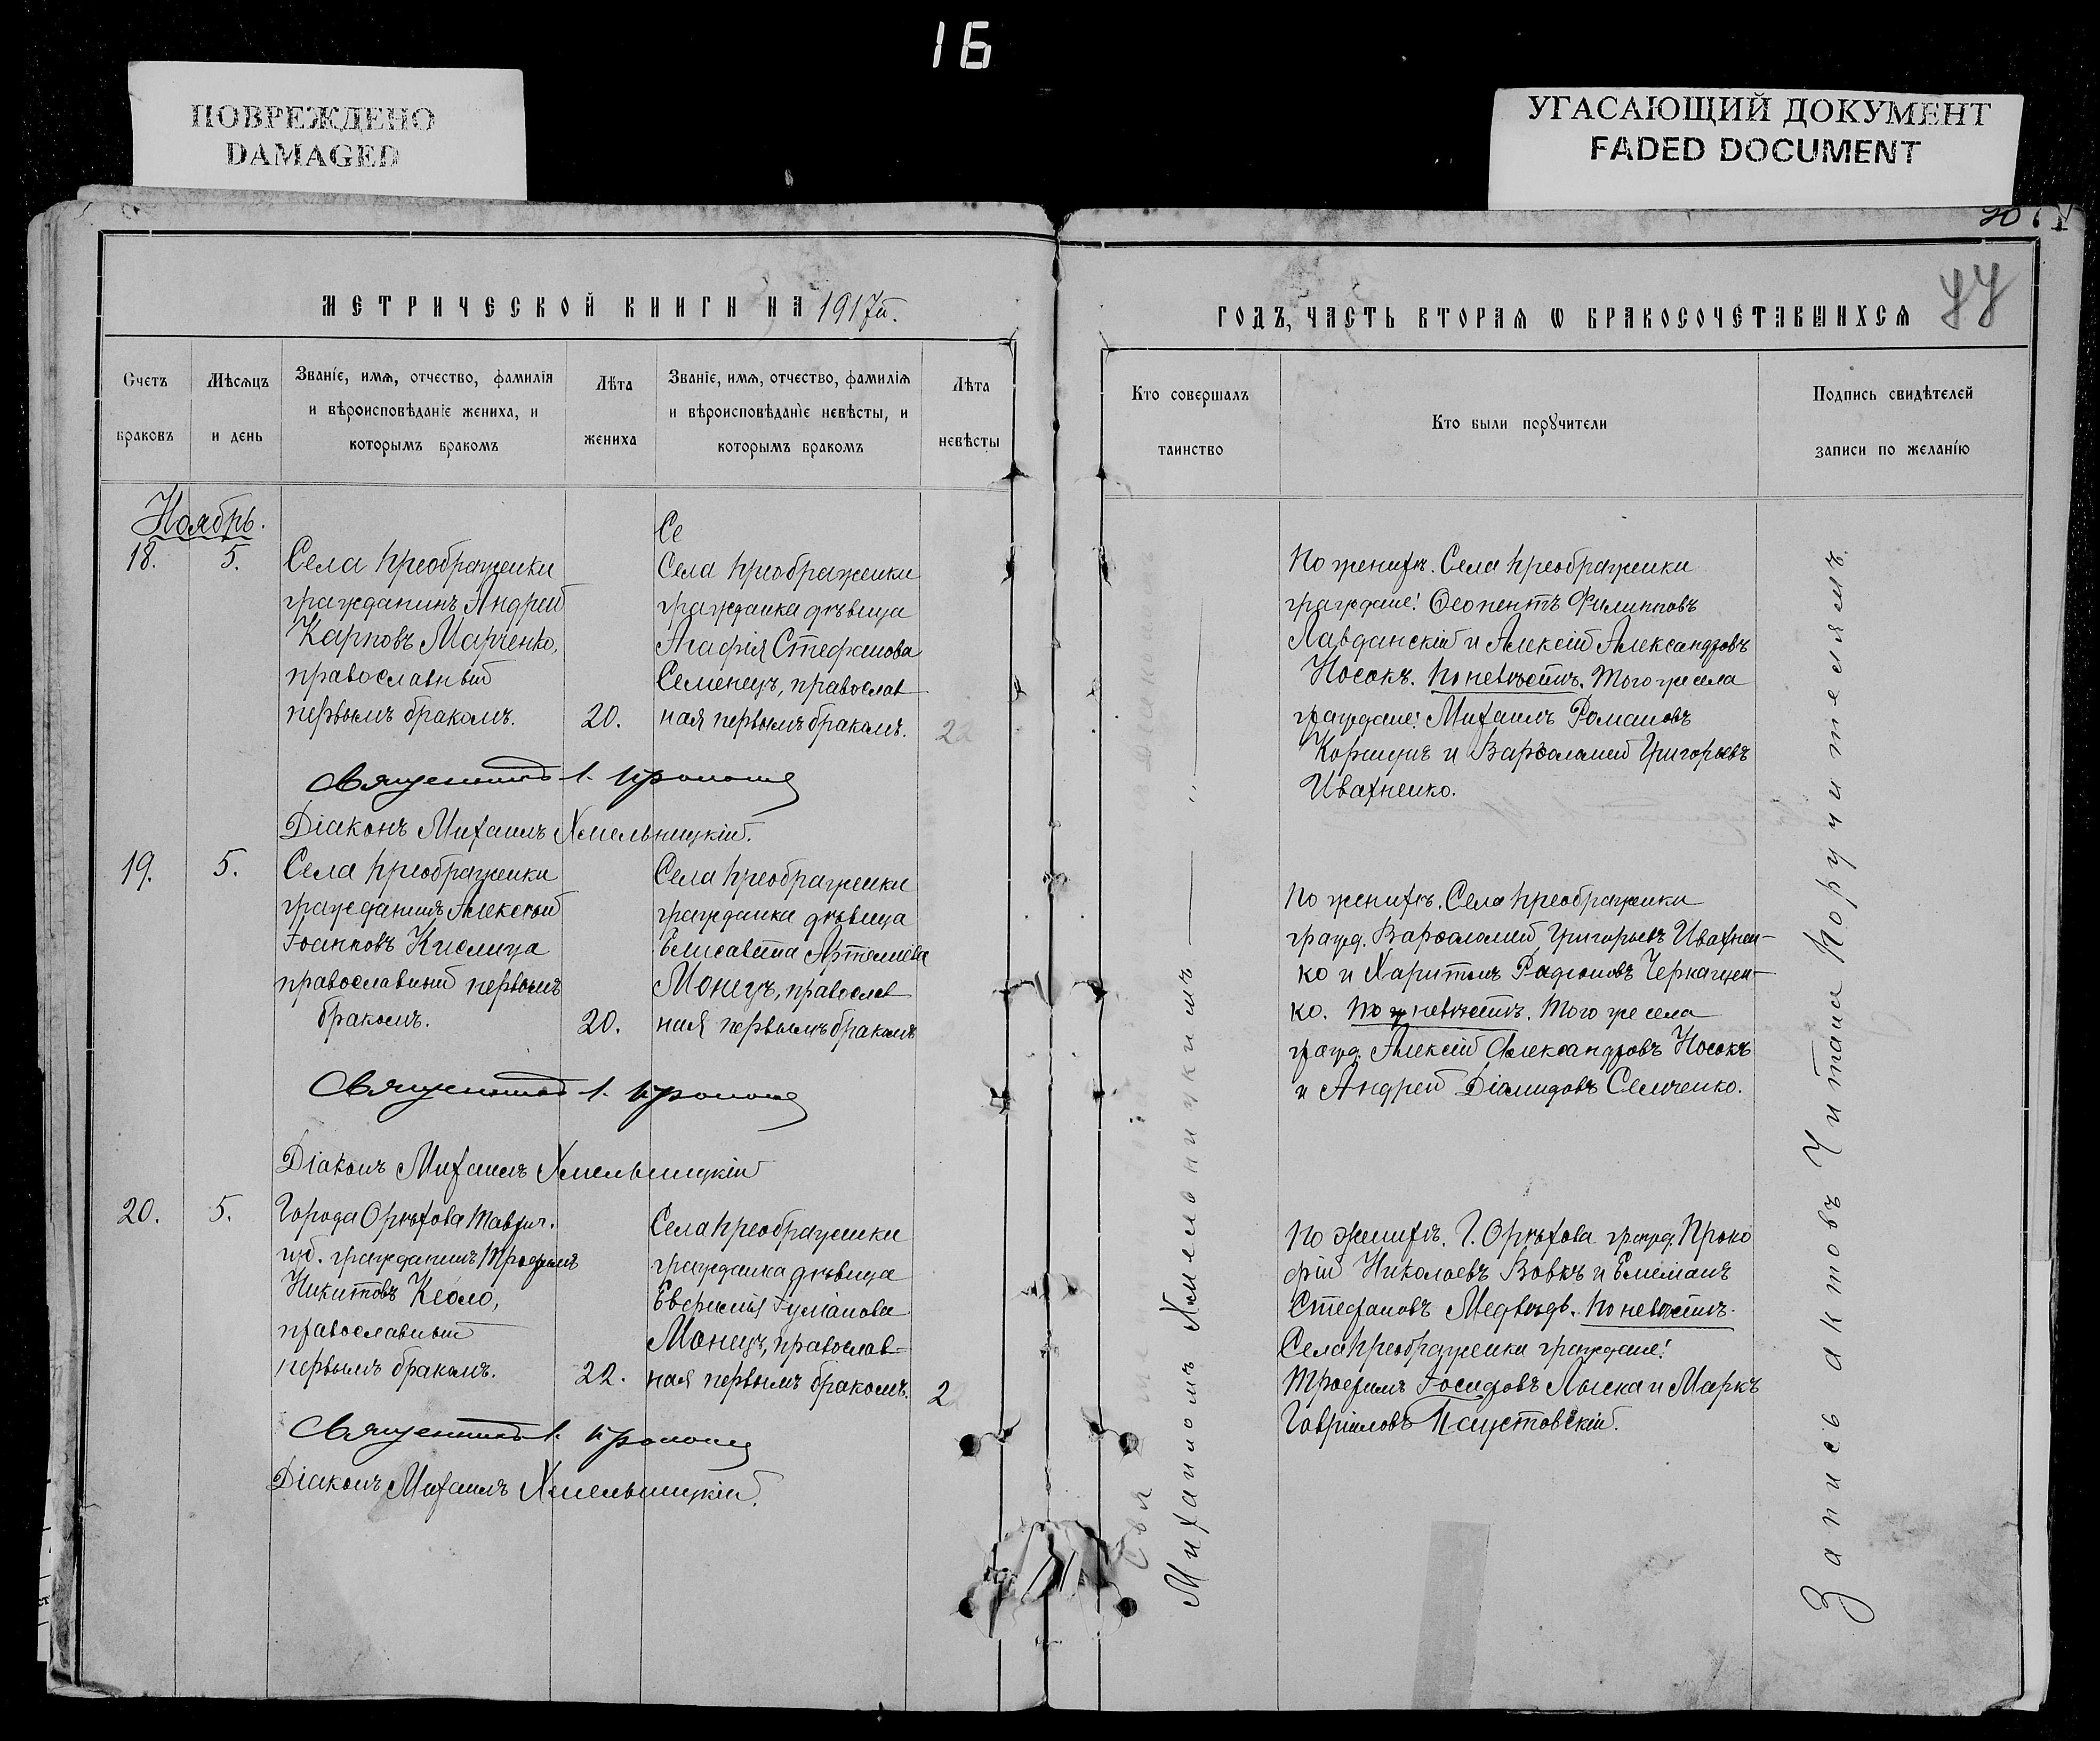 16
ПОВРЕЖДЕНО
DAMAGED
УГАСАЮЩИЙ ДОКУМЕНТ
FADED DOCUMENT
МЕТРИЧЕСКОЙ КНИГИ НА 1917й.
Счетъ браковъ
Мѣсяцъ и день
Званіе, имя, отчество, фамилія
и вѣроисповѣданіе жениха, и
которымъ бракомъ
Лѣта жениха
Званіе, имя, отчество, фамилія
и вѣроисповѣданіе невѣсты, и
которымъ бракомъ
Лѣта невѣсты
Ноябрь.
18. 5.
Села Преображенки
гражданинъ Андрей
Карповъ Марченко,
православный
первымъ бракомъ.
20.
Се
Села Преображенки
гражданка дѣвица
Агафія Стефанова
Семенецъ, православ
ная первымъ бракомъ.
22
Священникъ І.
Діаконъ Михаилъ Хмельницкій.
19. 5.
Села Преображенки
гражданинъ Алексѣй
Іоанновъ Кислица
православный первымъ
бракомъ.
20.
Села Преображенки
гражданка дѣвица
Елисавета Артемиева
Монецъ, православ
ная первымъ бракомъ
Священникъ І.
Діаконъ Михаилъ Хмельницкій
20. 5.
Города Орѣхова Таврич.
губ. гражданинъ Трофимъ
Никитовъ
православный
первымъ бракомъ.
22.
Села Преображенки
гражданка дѣвица
Евфимія Іуліанова
Монецъ, православ=
ная первымъ бракомъ.
2
Священникъ І.
Діаконъ Михаилъ Хмельницкій.
ГОДЪ, ЧАСТЬ ВТОРАЯ Ѡ БРАКОСОЧЕТАВШИХСЯ
Кто совершалъ
таинство
Кто были порꙋчители
Подпись свидѣтелей
записи по желанію
Михаиломъ Хмельницкимъ
По женихѣ. Села Преображенки
граждане: Ѳеопентъ Филипповъ
Лавданскій и Алексій Александровъ
Носокъ. По невѣстѣ. Того же села
граждане: Михаилъ Романовъ
Коршунъ и Варѳоломей Григорьевъ
Ивахненко.
По женихѣ. Села Преображенки
гражд. Варѳоломей Григорьевъ Ивахнен-
ко и Харитонъ Радіоновъ Черкащен-
ко. По невѣстѣ. Того же села
гражд. Алексій Александровъ Носокъ
и Андрей Діомидовъ Семченко.
По женихѣ. Г. Орѣхова гражд. Проко
фій Николаевъ Вовкъ и Емеліанъ
Стефановъ Медвѣдь. По невѣстѣ.
Села Преображенки граждане:
Трофимъ Іосифовъ Лыска и Маркъ
Гавріиловъ Паустовскій.
Запись актовъ читана поручителямъ.